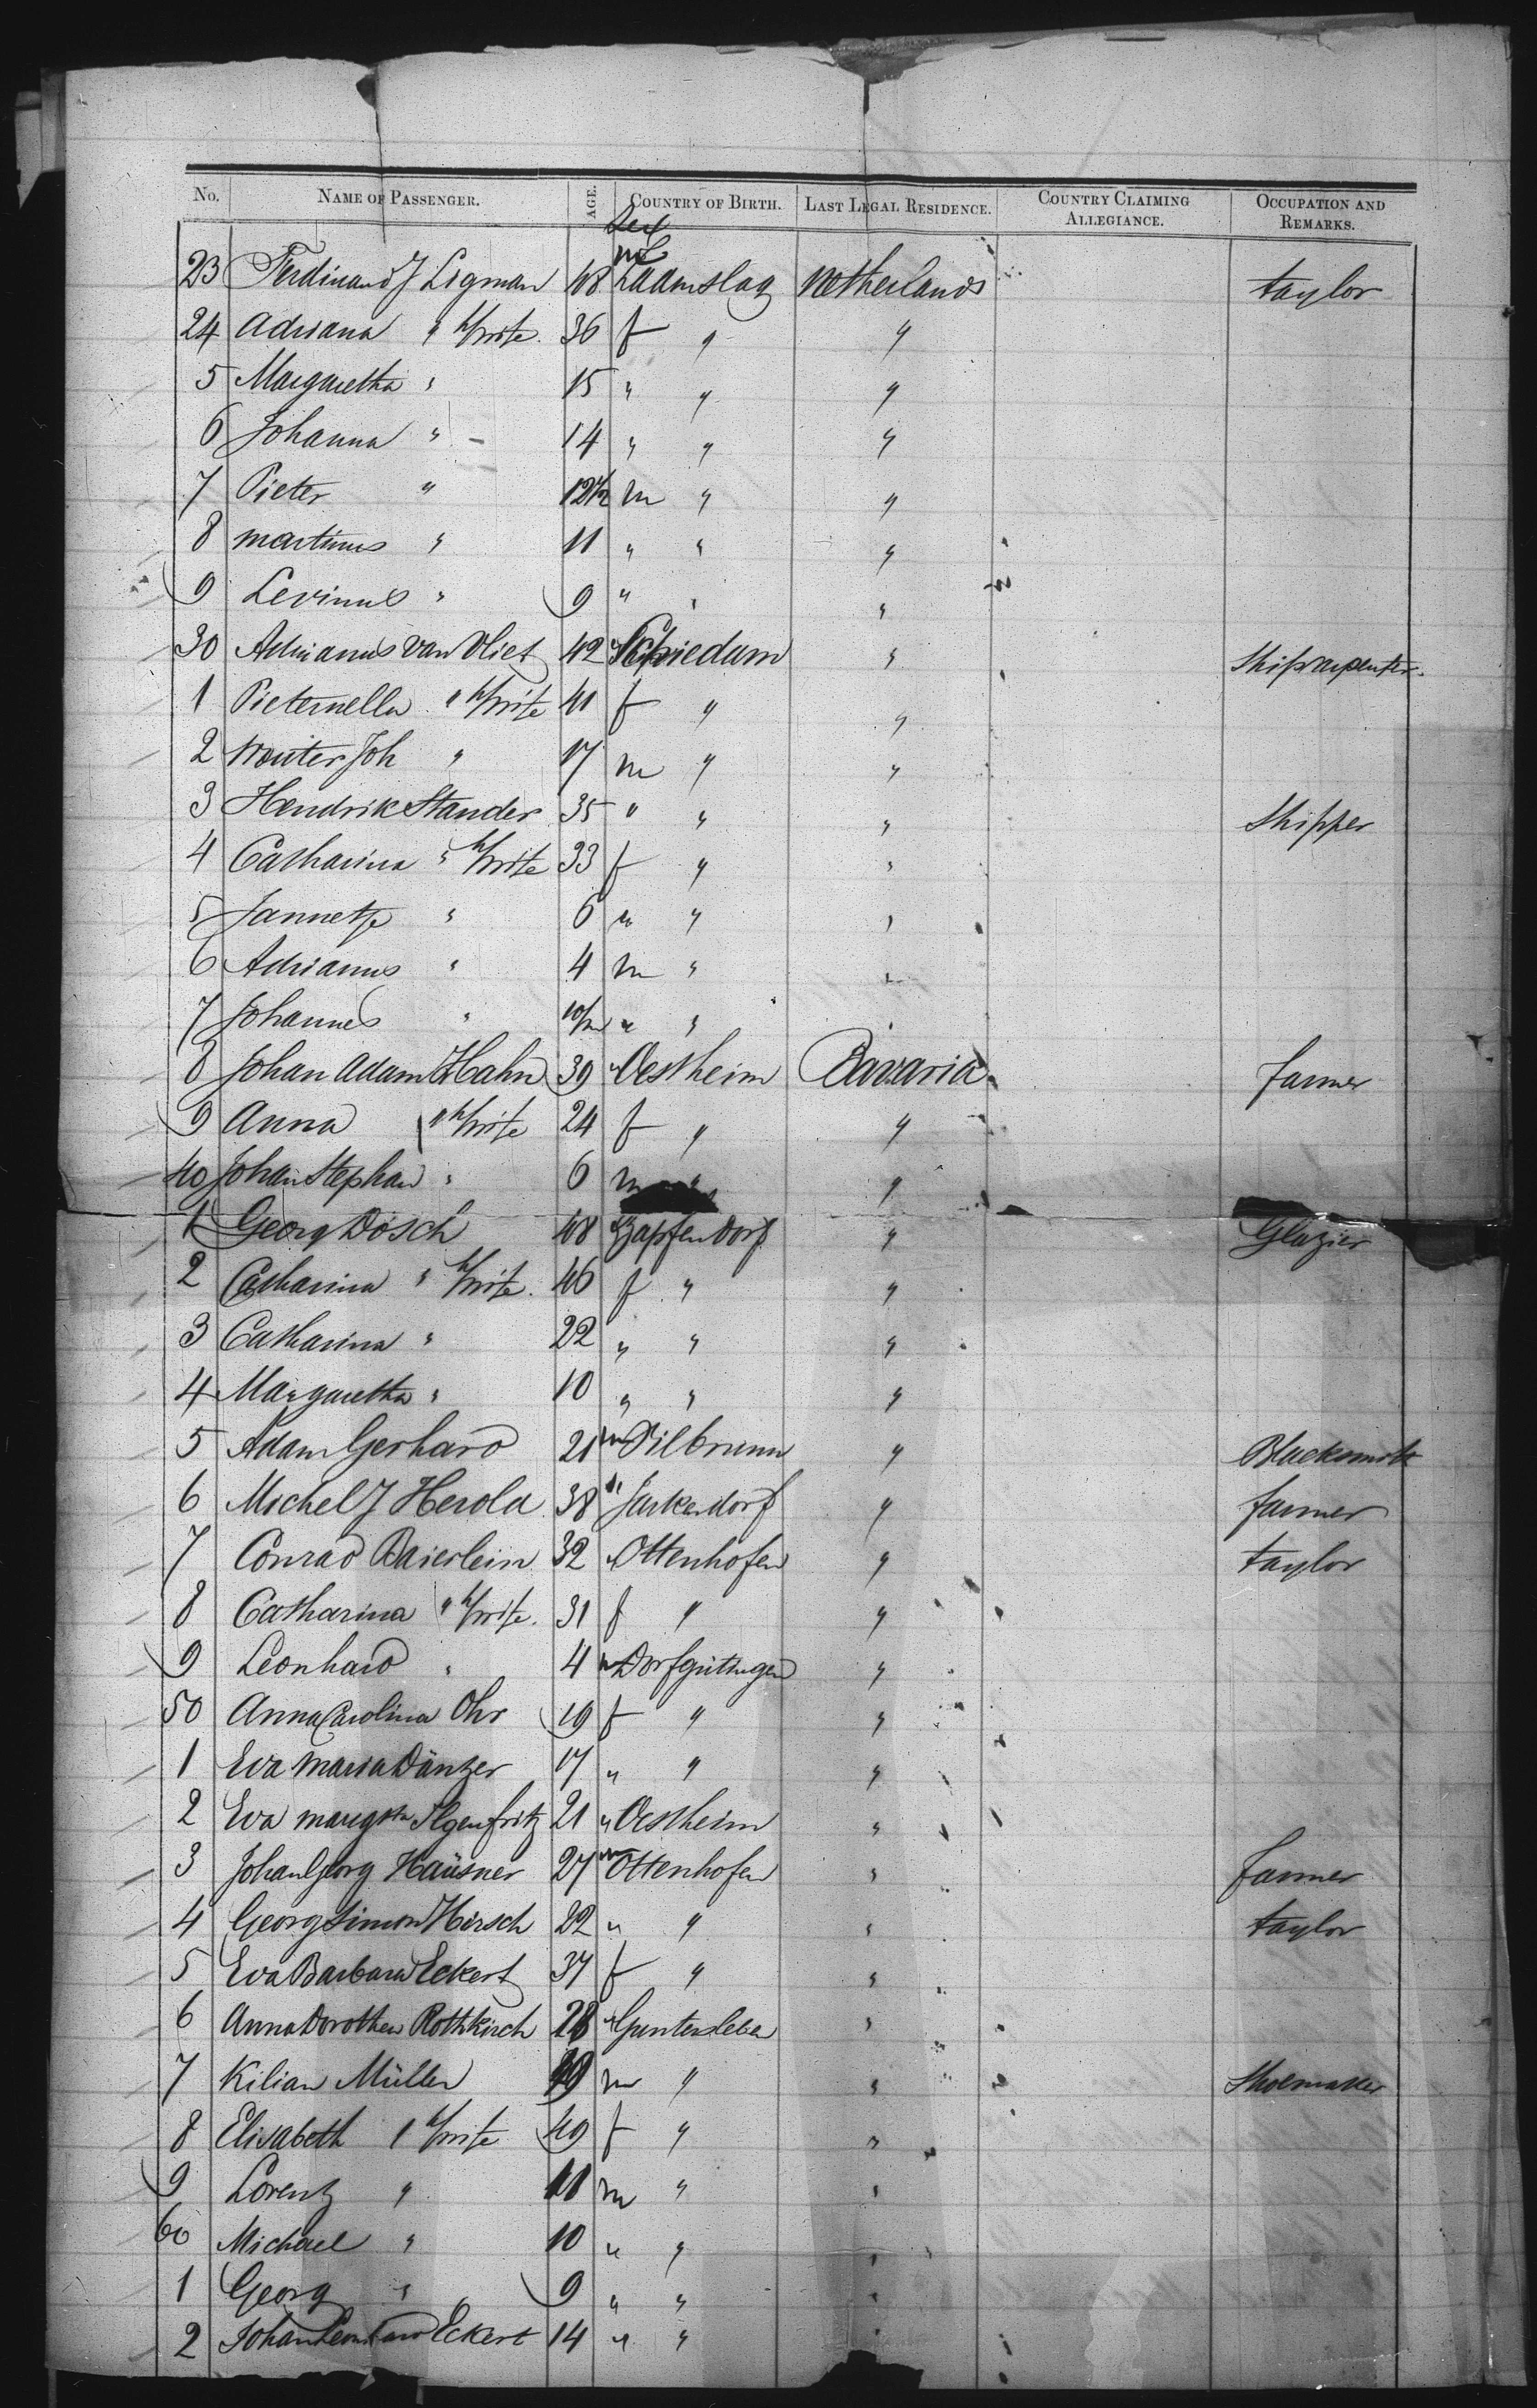 No. NAME OF PASSENGER. AGE. COUNTRY OF BIRTH. LAST LEGAL RESIDENCE. COUNTRY CLAIMING ALLEGIANCE. OCCUPATION AND REMARKS.
Sex
23 Ferdinand J Ligman 48 m Zaamslag Netherlands taylor
24 Adriana " h/wife 36 f " "
5 Margaretha " 15 " " "
6 Johanna " 14 " " "
7 Pieter " 12½ m " "
8 martinus " 11 " " "
9 Levinus " 9 " " "
30 Adrianus van Vliet 42 " Schiedam " Shipcarpenter
1 Pieternella " h/wife 41 f " "
2 Wouter Joh " 17 m " "
3 Hendrik Stander 35 " " " Shipper
4 Catharina " h/wife 33 f " "
5 Jannetje " 6 " " "
6 Adrianus " 4 m " "
7 Johannes " 10/m " " "
8 Johan Adam Hahn 39 " Oestheim Bavaria farmer
9 Anna " h/wife 24 f " "
40 Johan Stephan " 6 m " "
1 Georg Dösch 48 " Zapfendorf " Glazier
2 Catharina " h/wife 46 f " "
3 Catharina " 22 " " "
4 Margaretha " 10 " " "
5 Adam Gerhard 21 m " Blacksmith
6 Michel J Herold 38 " Jarkendorf " farmer
7 Conrad Baierlein 32 " Ottenhofen " taylor
8 Catharina " h/wife 31 f " "
9 Leonhard " 4 m Dorfgüttingen "
50 Anna Carolina Ohr 19 f " "
1 Eva Maria Dänzer 17 " " "
2 Eva margtha Ilgenfritz 21 " Oestheim "
3 Johan Georg Haüsner 27 m Ottenhofen " farmer
4 Georg Simon Hirsch 22 " " " taylor
5 Eva Barbara Eckert 37 f " "
6 Anna Dorothea Rothkirch 28 " Guntersleben "
7 Kilian Müller 49 m " " Shoemaker
8 Elisabeth " h/wife 49 f " "
9 Lorentz " 11 m " "
60 Michael " 10 " " "
1 Georg " 9 " " "
2 Johan Leonhard Eckert 14 " " "